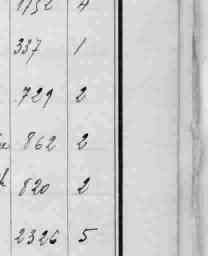 1152 4
337 1
729 2
862 2
820 2
2326 5